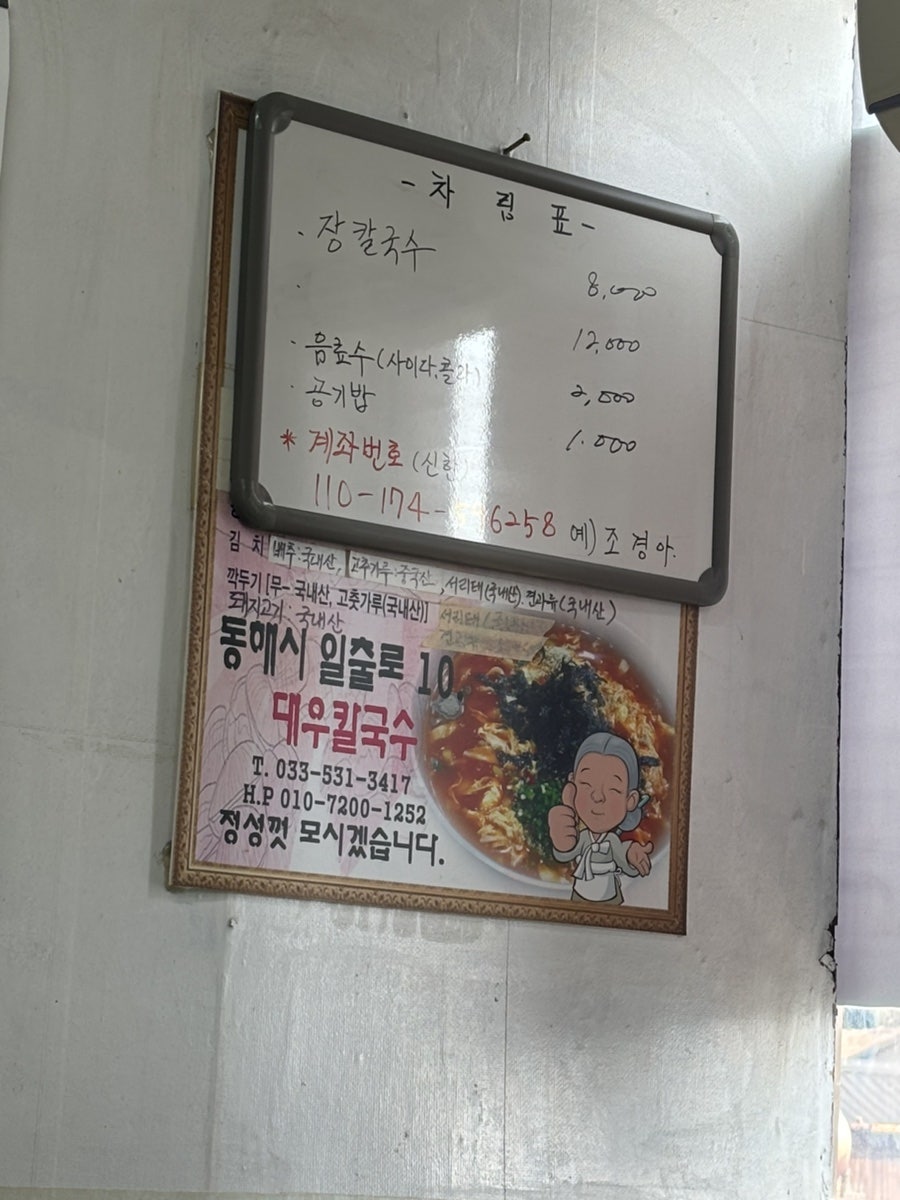 - 차 림 표 -
· 장칼국수 8,000
· 12,000
· 음료수 (사이다, 콜라) 2,000
· 공기밥 1.000
* 계좌번호 (신한)
110-174- 6258 예) 조경아.
김 치 배추:국내산, 고추가루:중국산, 서리태(국내산). 견과류(국내산)
깍두기 [무-국내산, 고춧가루(국내산)] 서리태
돼지고기: 국내산
동해시 일출로 10.
대우칼국수
T. 033-531-3417
H.P 010-7200-1252
정성껏 모시겠습니다.